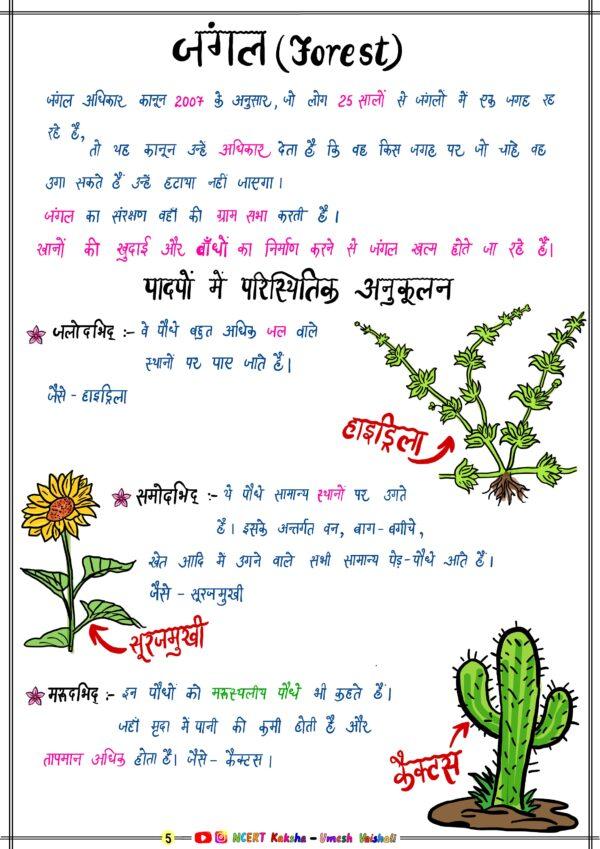 जंगल (Forest)
जंगल अधिकार कानून 2007 के अनुसार, जो लोग 25 सालों से जंगलों में एक जगह रह
रहे हैं,
तो यह कानून उन्हें अधिकार देता है कि वह किस जगह पर जो चाहे वह
उगा सकते हैं उन्हें हटाया नहीं जाएगा।
जंगल का संरक्षण वहाँ की ग्राम सभा करती है।
खानों की खुदाई और बाँधों का निर्माण करने से जंगल खत्म होते जा रहे हैं।
पादपों में परिस्थितिक अनुकूलन
जलोदभिद् :- वे पौधे बहुत अधिक जल वाले
स्थानों पर पाए जाते हैं।
जैसे - हाइड्रिला
हाइड्रिला
समोदभिद् :- ये पौधे सामान्य स्थानों पर उगते
हैं। इसके अन्तर्गत वन, बाग-बगीचे,
खेत आदि में उगने वाले सभी सामान्य पेड़-पौधे आते हैं।
जैसे - सूरजमुखी
सूरजमुखी
मरूदभिद् :- इन पौधों को मरूस्थलीय पौधे भी कहते हैं।
जहाँ मृदा में पानी की कमी होती है और
तापमान अधिक होता है। जैसे - कैक्टस।
कैक्टस
5 NCERT Kaksha - Umesh Vaishali